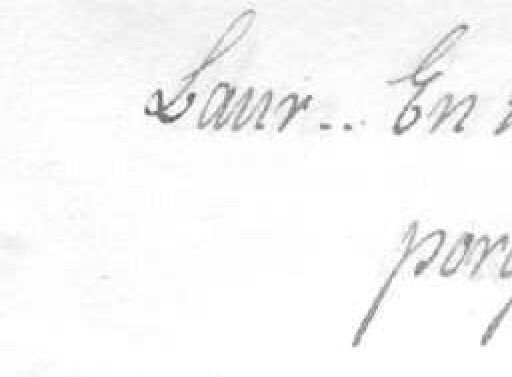 Laur.. En
porq